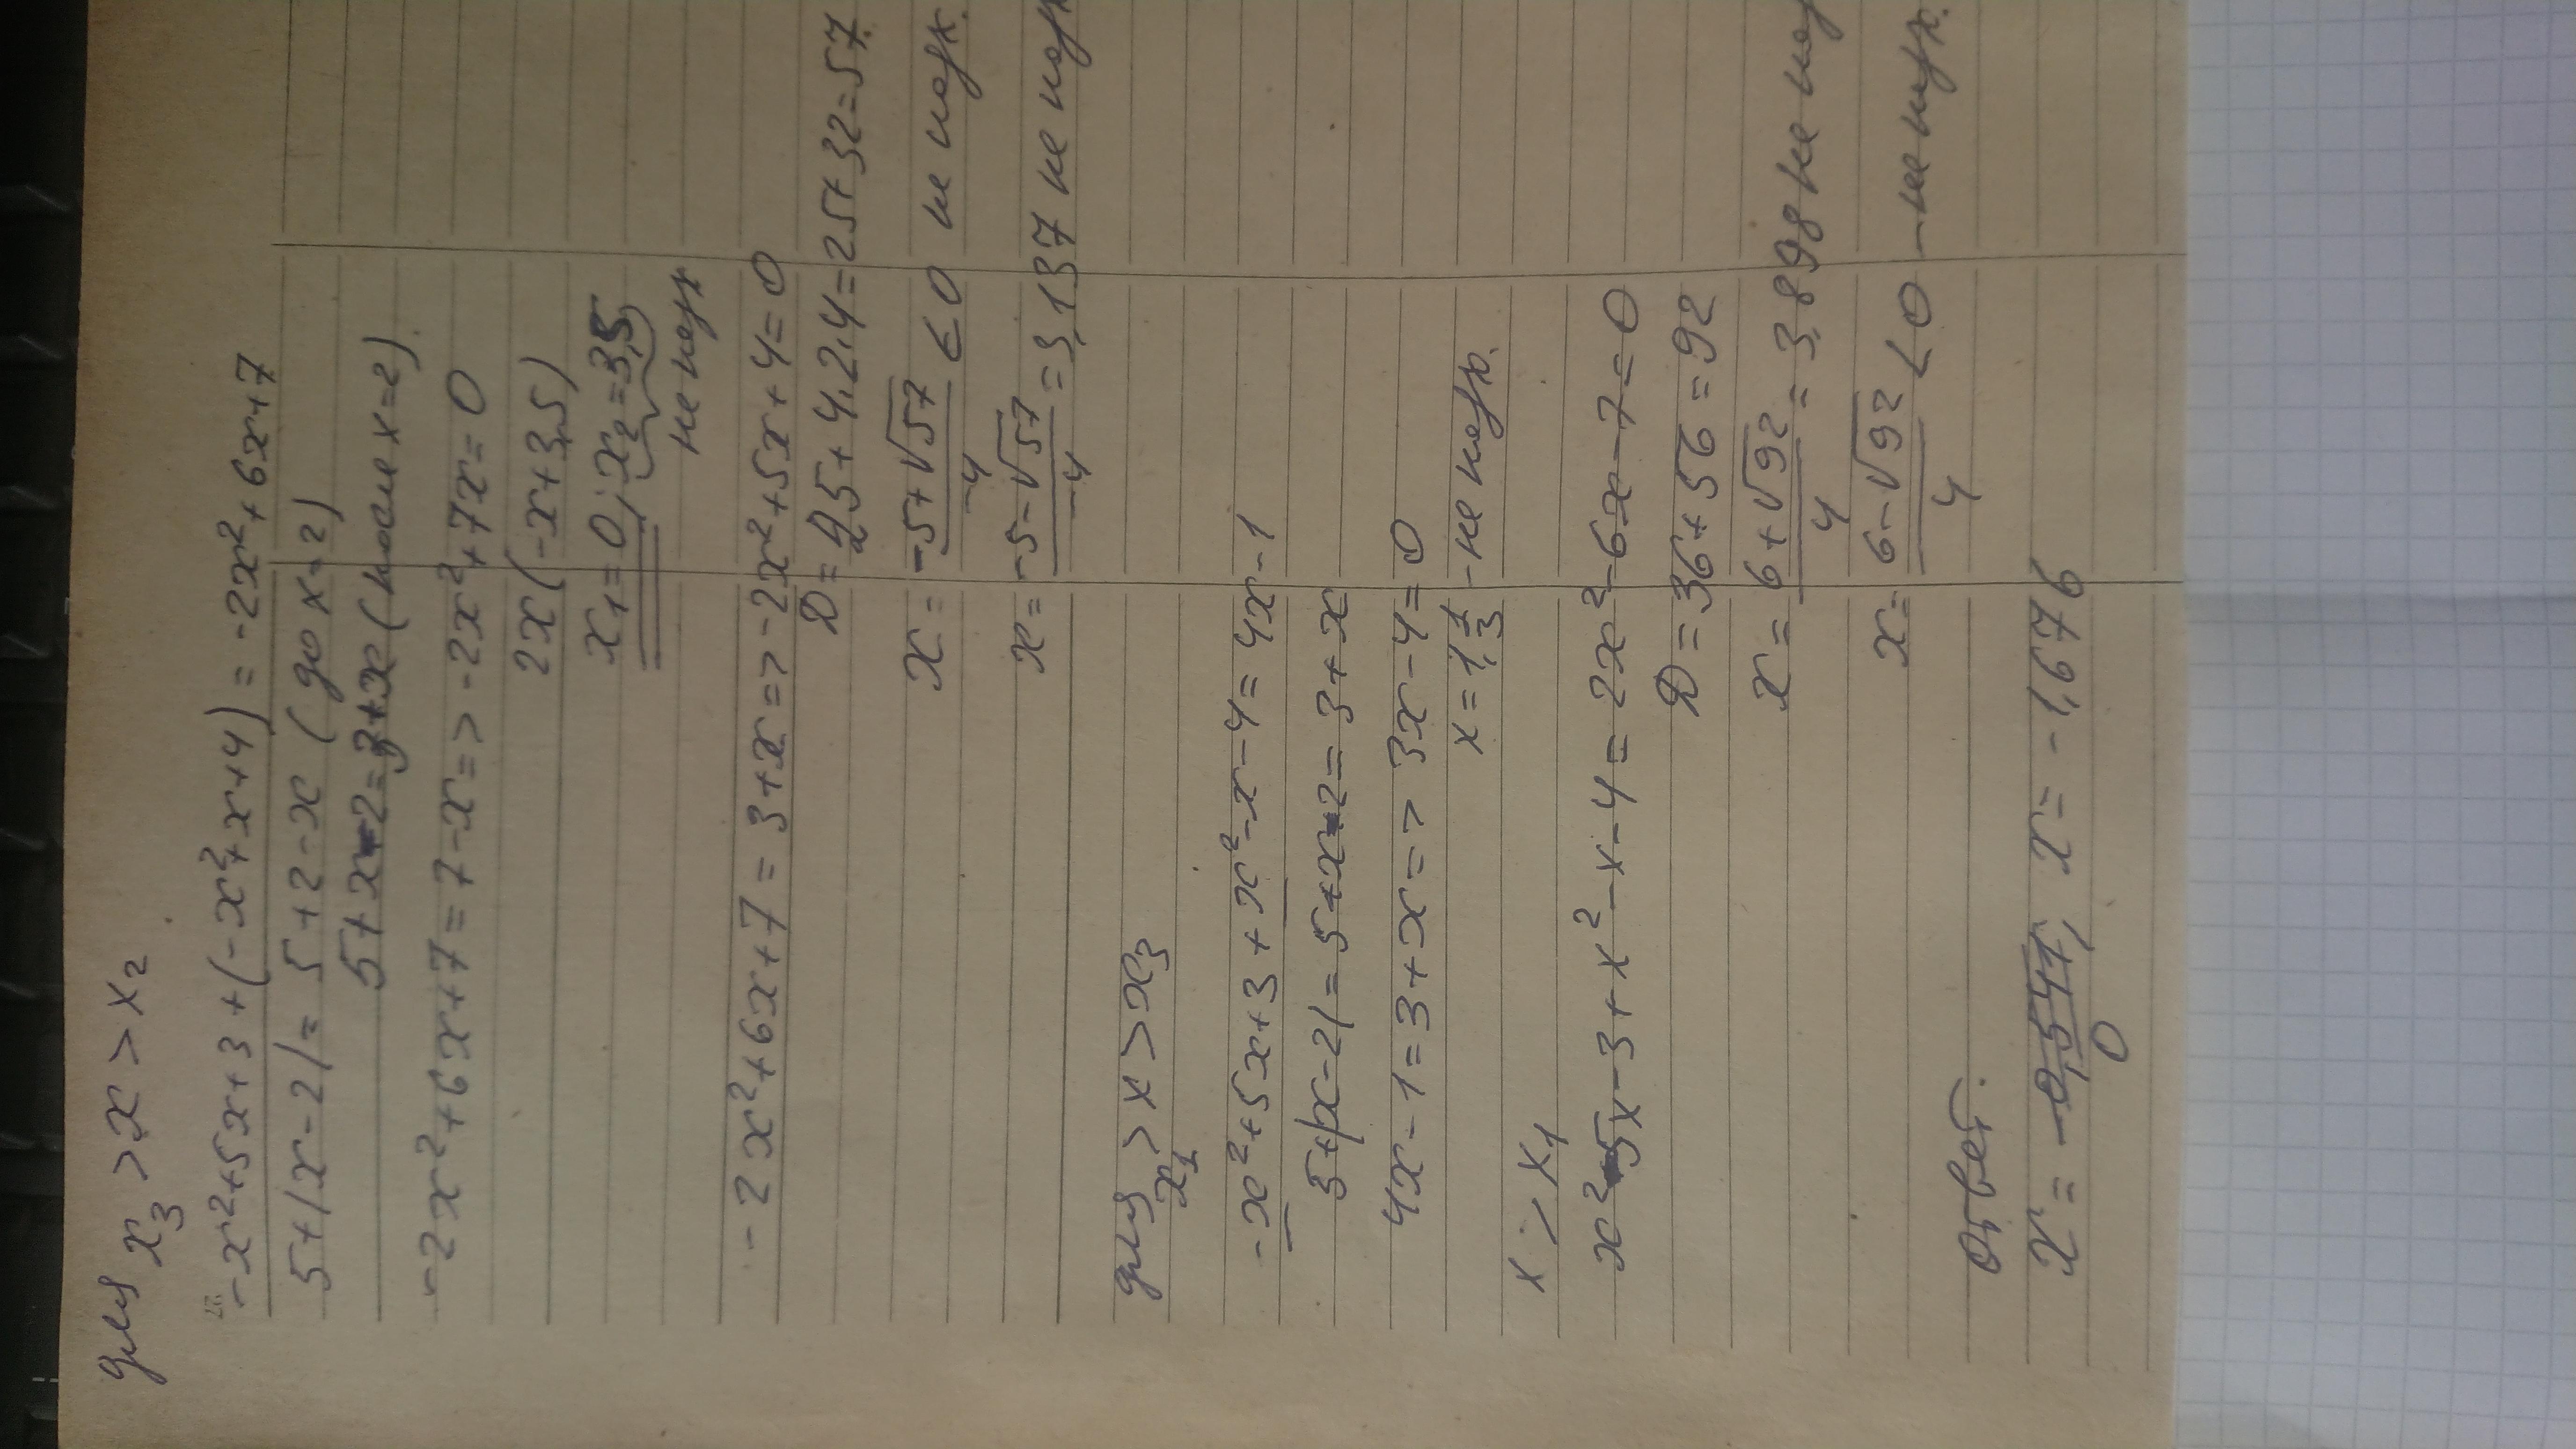 для x₃ > x > x₂
-x²+5x+3+(-x²+x+4) = -2x²+6x+7
5+|x-2| = 5+2-x (до x=2)
5+x-2=3+x (после x=2)
-2x²+6x+7=7-x=> -2x²+7x=0
2x(-x+3,5)
x₁=0; x₂=3,5
не подх
-2x²+6x+7=3+x=>-2x²+5x+4=0
D=25+4.2.4=25+32=57.
x= (-5+√57)/-4 ≤ 0 не подх.
x= (-5-√57)/-4 = 3,137 не подх
для x₁ > x > x₃
-x²+5x+3+x²-x-4=4x-1
5+|x-2|=5+x-2=3+x
4x-1=3+x=> 3x-4=0
x=1,1/3 -не подх.
x > x₁
x²-5x-3+x²-x-4=2x²-6x-7=0
D=36+56=92
x= (6+√92)/4 = 3,898 не под
x= (6-√92)/4 < 0 -не подх.
Ответ.
x= 0, x= -1,676